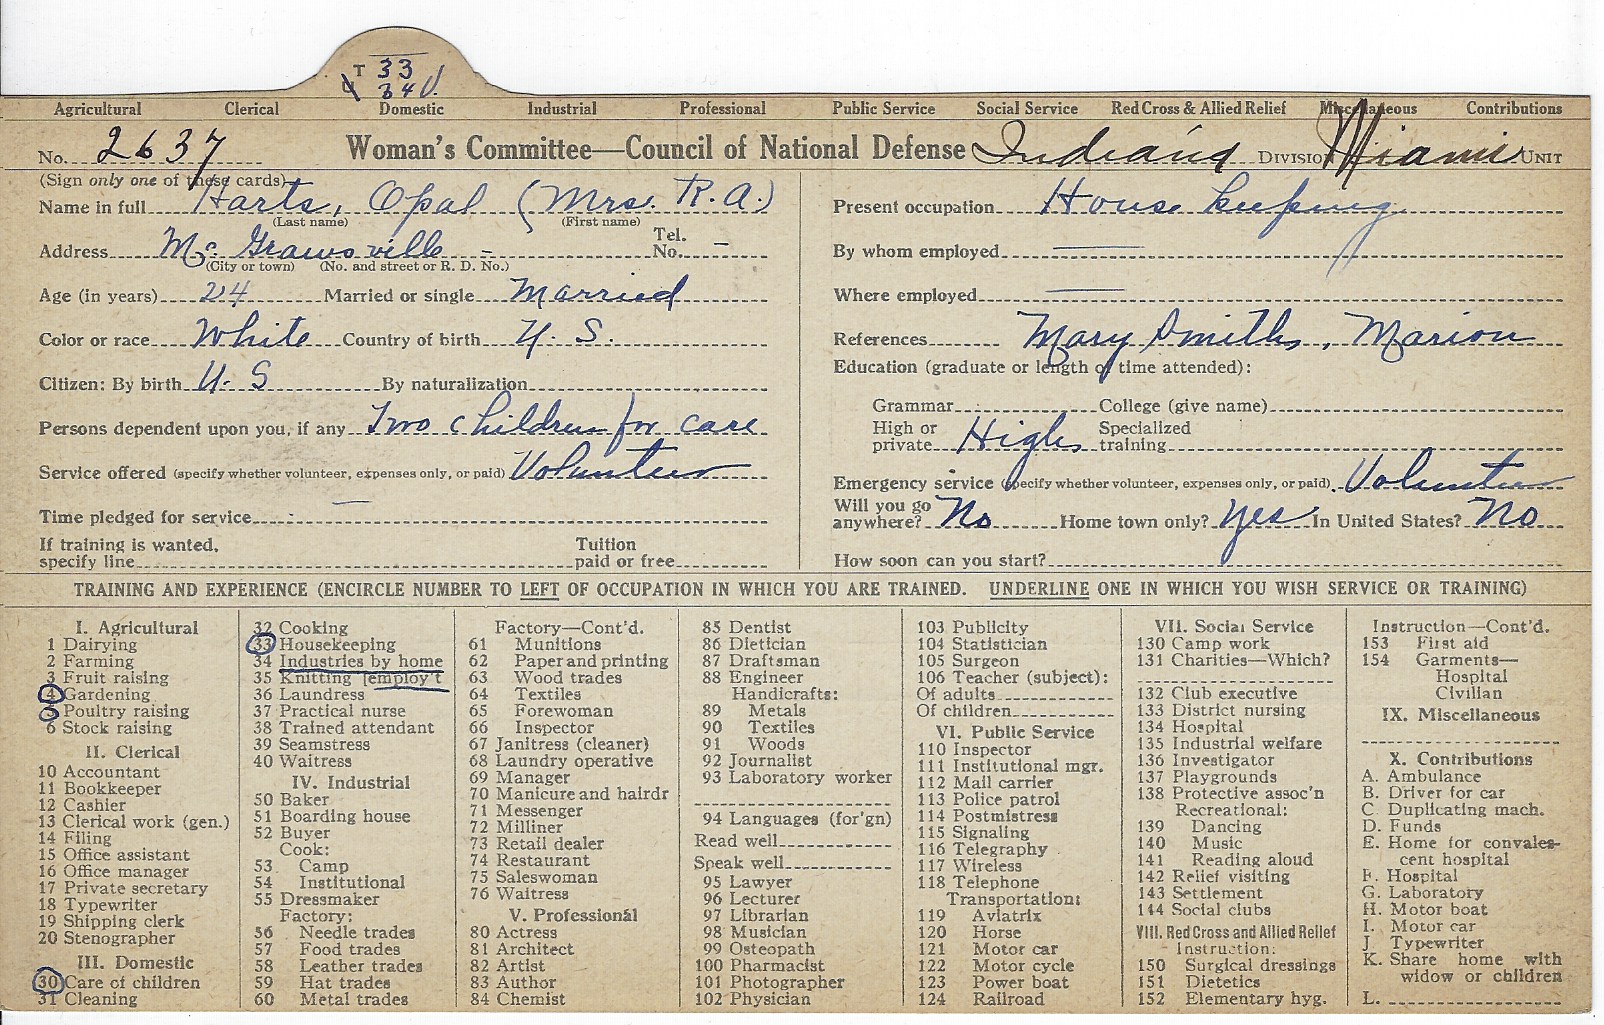 T 33
34 V.
Agricultural Clerical Domestic Industrial Professional Public Service Social Service Red Cross & Allied Relief Miscellaneous Contributions
No. 2637 Woman's Committee—Council of National Defense Indiana DIVISION Miami UNIT
(Sign only one of these cards)
Name in full Harts, Opal (Mrs. R.A.)
(Last name) (First name)
Address Mc Grawsville Tel. No. –
(City or town) (No. and street or R. D. No.)
Age (in years) 24 Married or single Married
Color or race White Country of birth U. S.
Citizen: By birth U. S By naturalization
Persons dependent upon you, if any Two children for care
Service offered (specify whether volunteer, expenses only, or paid) Volunteer
Time pledged for service –
If training is wanted, specify line Tuition paid or free
Present occupation House keeping
By whom employed
Where employed
References Mary Smith, Marion
Education (graduate or length of time attended):
Grammar College (give name)
High or private High Specialized training
Emergency service (specify whether volunteer, expenses only, or paid). Volunteer
Will you go anywhere? No Home town only? Yes In United States? No
How soon can you start?
TRAINING AND EXPERIENCE (ENCIRCLE NUMBER TO LEFT OF OCCUPATION IN WHICH YOU ARE TRAINED. UNDERLINE ONE IN WHICH YOU WISH SERVICE OR TRAINING)
I. Agricultural
1 Dairying
2 Farming
3 Fruit raising
4 Gardening
5 Poultry raising
6 Stock raising
II. Clerical
10 Accountant
11 Bookkeeper
12 Cashier
13 Clerical work (gen.)
14 Filing
15 Office assistant
16 Office manager
17 Private secretary
18 Typewriter
19 Shipping clerk
20 Stenographer
III. Domestic
30 Care of children
31 Cleaning
32 Cooking
33 Housekeeping
34 Industries by home
35 Knitting [employ't
36 Laundress
37 Practical nurse
38 Trained attendant
39 Seamstress
40 Waitress
IV. Industrial
50 Baker
51 Boarding house
52 Buyer
Cook:
53 Camp
54 Institutional
55 Dressmaker
Factory:
56 Needle trades
57 Food trades
58 Leather trades
59 Hat trades
60 Metal trades
Factory—Cont'd.
61 Munitions
62 Paper and printing
63 Wood trades
64 Textiles
65 Forewoman
66 Inspector
67 Janitress (cleaner)
68 Laundry operative
69 Manager
70 Manicure and hairdr
71 Messenger
72 Milliner
73 Retail dealer
74 Restaurant
75 Saleswoman
76 Waitress
V. Professional
80 Actress
81 Architect
82 Artist
83 Author
84 Chemist
85 Dentist
86 Dietician
87 Draftsman
88 Engineer
Handicrafts:
89 Metals
90 Textiles
91 Woods
92 Journalist
93 Laboratory worker
94 Languages (for'gn)
Read well
Speak well
95 Lawyer
96 Lecturer
97 Librarian
98 Musician
99 Osteopath
100 Pharmacist
101 Photographer
102 Physician
103 Publicity
104 Statistician
105 Surgeon
106 Teacher (subject):
Of adults
Of children
VI. Public Service
110 Inspector
111 Institutional mgr.
112 Mail carrier
113 Police patrol
114 Postmistress
115 Signaling
116 Telegraphy
117 Wireless
118 Telephone
Transportation:
119 Aviatrix
120 Horse
121 Motor car
122 Motor cycle
123 Power boat
124 Railroad
VII. Social Service
130 Camp work
131 Charities—Which?
132 Club executive
133 District nursing
134 Hospital
135 Industrial welfare
136 Investigator
137 Playgrounds
138 Protective assoc'n
Recreational:
139 Dancing
140 Music
141 Reading aloud
142 Relief visiting
143 Settlement
144 Social clubs
VIII. Red Cross and Allied Relief
Instruction:
150 Surgical dressings
151 Dietetics
152 Elementary hyg.
Instruction—Cont'd.
153 First aid
154 Garments—
Hospital
Civilian
IX. Miscellaneous
X. Contributions
A. Ambulance
B. Driver for car
C Duplicating mach.
D. Funds
E. Home for convales-
cent hospital
F. Hospital
G. Laboratory
H. Motor boat
I. Motor car
J. Typewriter
K. Share home with
widow or children
L.